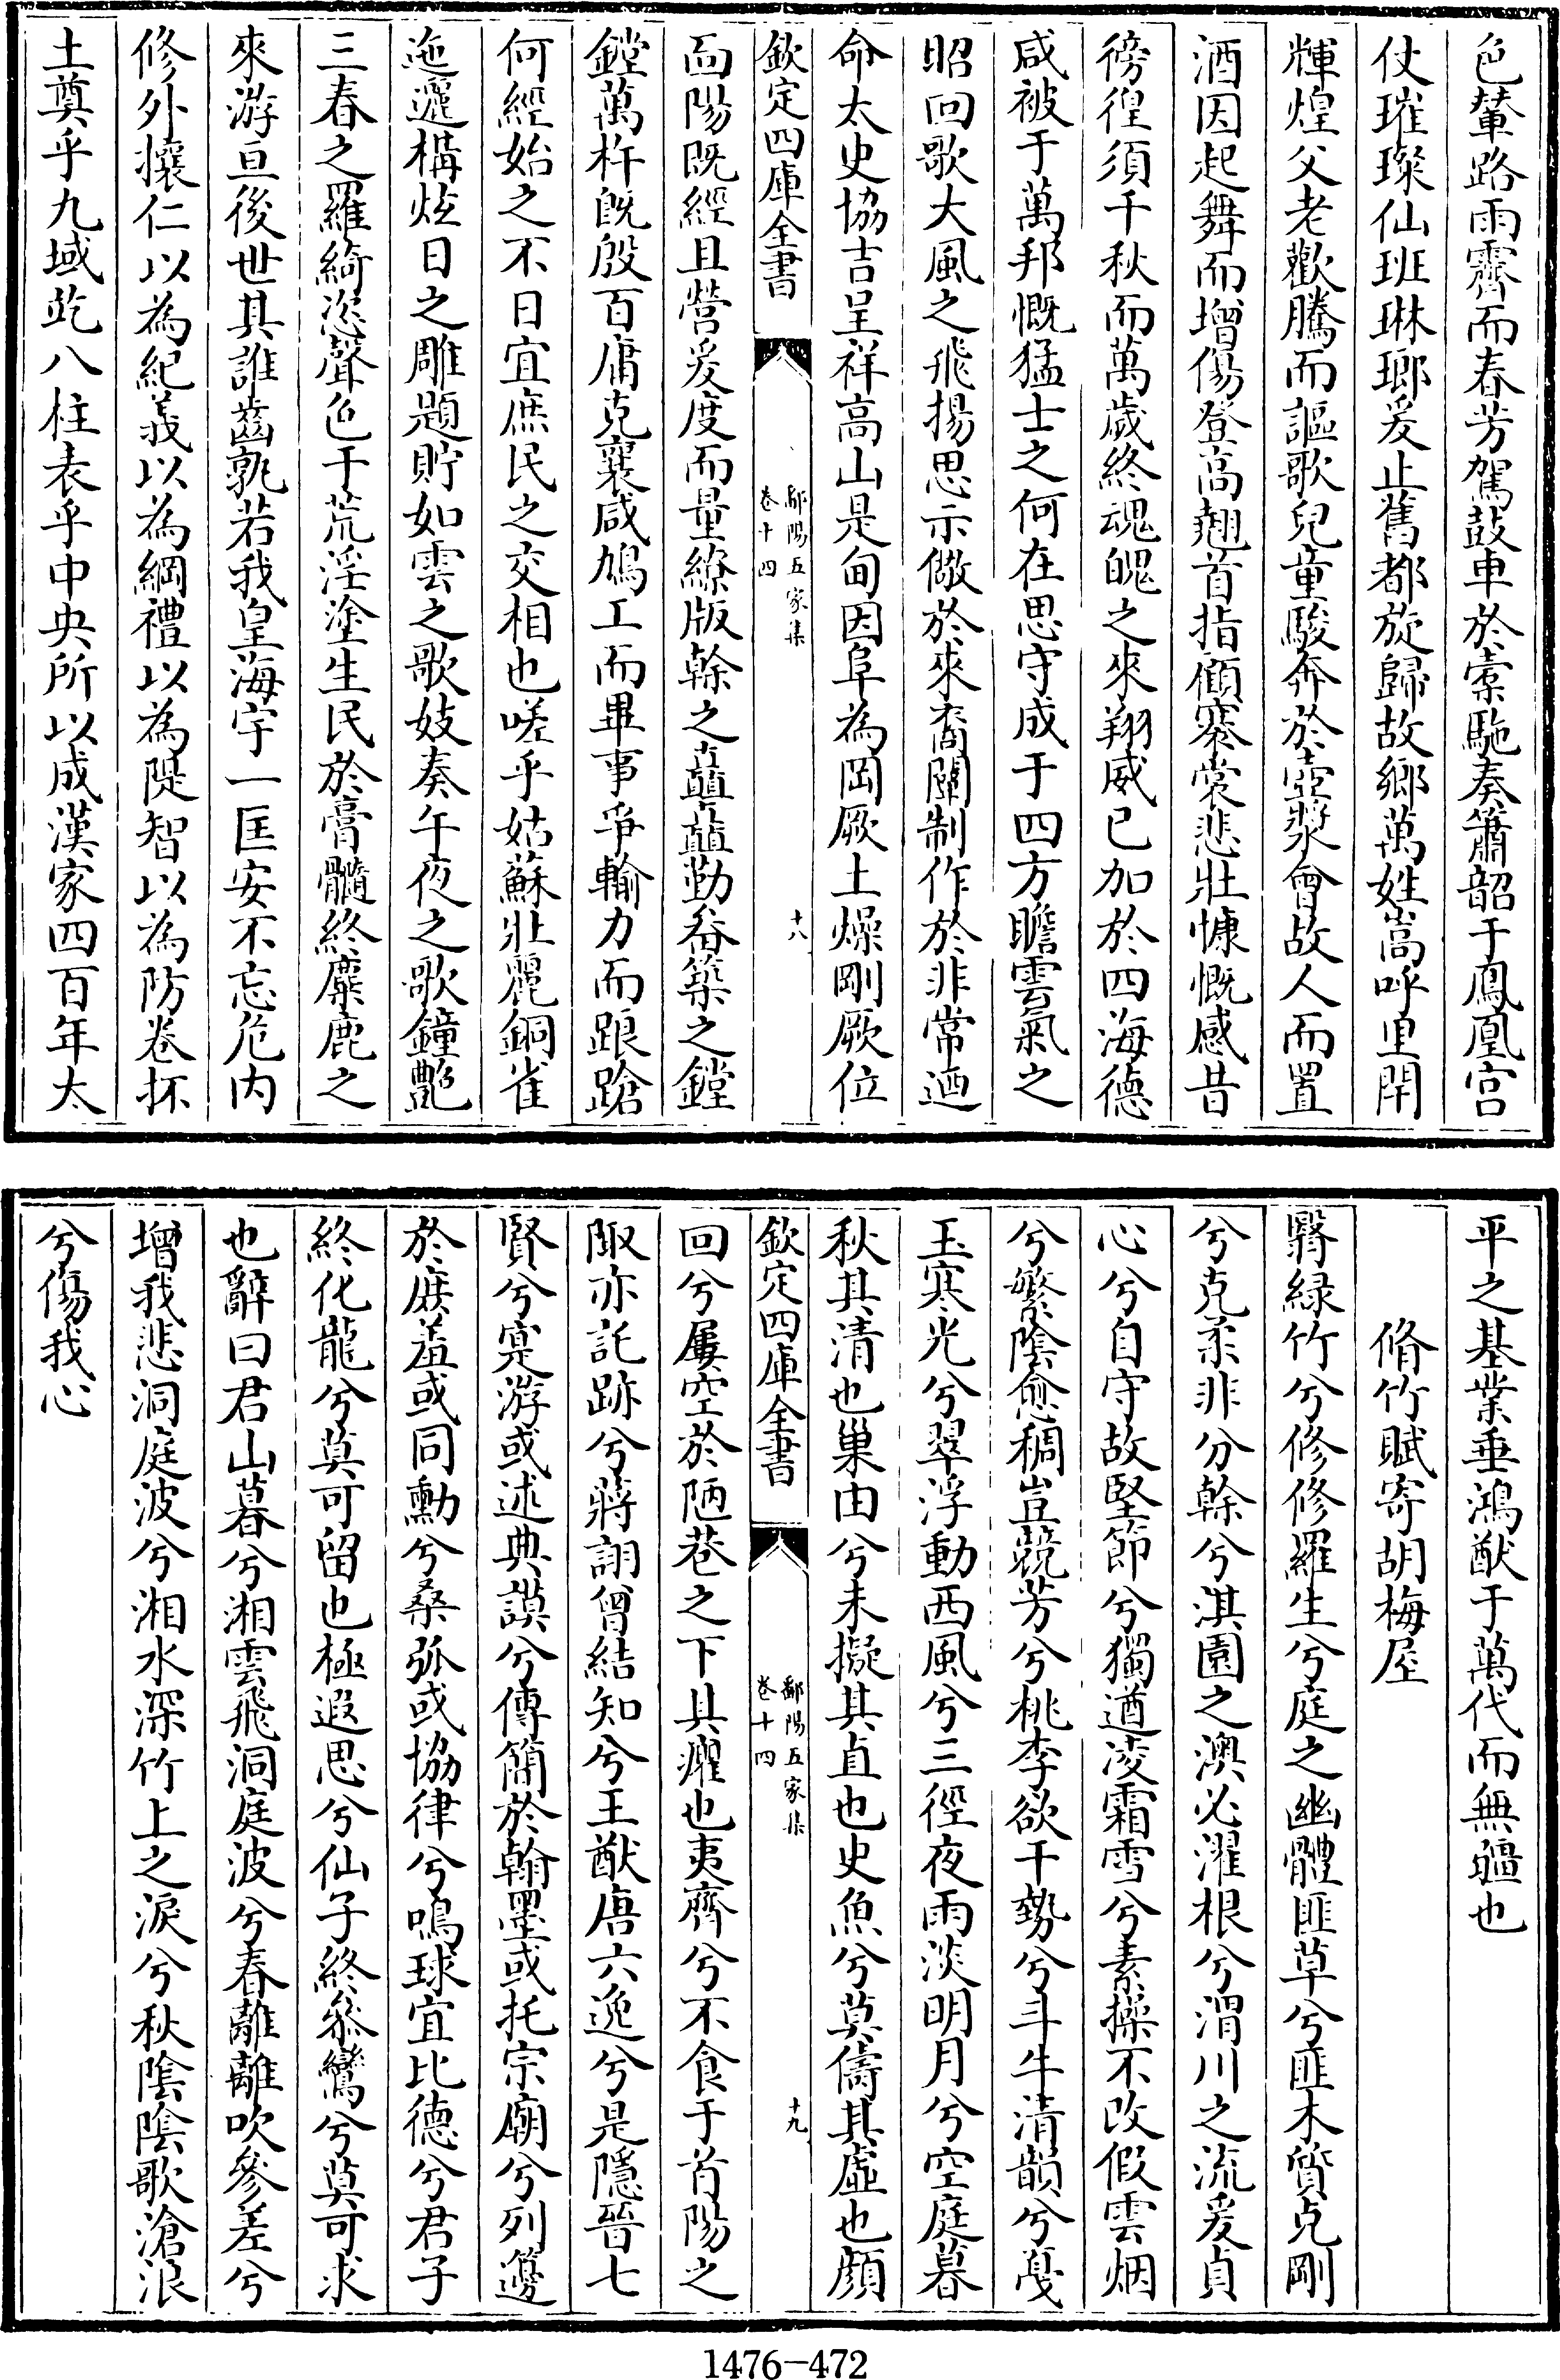 色輦路雨霽而春芳駕鼓車於橐駞奏簫韶于鳳凰宫
仗璀璨仙班琳瑯爰止舊都旋歸故鄉萬姓嵩呼里閈
輝煌父老歡騰而謳歌兒童駿奔於壺漿會故人而置
酒因起舞而增傷登高翹首指顧褰裳悲壯慷慨感昔
徬徨須千秋而萬歲終魂魄之來翔威已加於四海德
咸被于萬邦慨猛士之何在思守成于四方瞻雲氣之
昭回歌大風之飛揚思示儆於來裔闡制作於非常廼
命太史協吉呈祥高山是甸因阜為岡厥土燥剛厥位
欽定四庫全書
鄱陽五家集
卷十四
十八
面陽既經且營爰度而量繚版榦之矗矗勤畚築之鏜
鏜萬杵旣殷百庸克襄咸鳩工而畢事爭輸力而踉蹌
何經始之不日宜庶民之交相也嗟乎姑蘇壯麗銅雀
迤邐構炫日之雕題貯如雲之歌妓奏午夜之歌鐘艷
三春之羅綺恣聲色于荒淫塗生民於膏髓終麋鹿之
來游亘後世其誰齒孰若我皇海宇一匡安不忘危内
修外攘仁以為紀義以為綱禮以為隄智以為防卷抔
土奠乎九域屹八柱表乎中央所以成漢家四百年太
平之基業垂鴻猷于萬代而無疆也
脩竹賦寄胡梅屋
翳緑竹兮修修羅生兮庭之幽體匪草兮匪木質克剛
兮克柔非分榦兮淇園之澳必濯根兮渭川之流爰貞
心兮自守故堅節兮獨遒凌霜雪兮素操不改假雲烟
兮繁陰愈稠豈競芳兮桃李欲干勢兮斗牛清韻兮戞
玉寒光兮翠浮動西風兮三徑夜雨淡明月兮空庭暮
秋其清也巢由兮未擬其貞也史魚兮莫儔其虛也顔
欽定四庫全書
鄱陽五家集
卷十四
十九
回兮屢空於陋巷之下其癯也夷齊兮不食于首陽之
陬亦託跡兮蔣詡曾結知兮王猷唐六逸兮是隱晉七
賢兮寔游或述典謨兮傳簡於翰墨或托宗廟兮列籩
於庶羞或同勳兮桑弧或協律兮鳴球宜比德兮君子
終化龍兮莫可留也極遐思兮仙子終叅鸞兮莫可求
也辭曰君山暮兮湘雲飛洞庭波兮春離離吹參差兮
增我悲洞庭波兮湘水深竹上之淚兮秋陰陰歌滄浪
兮傷我心
1476-472